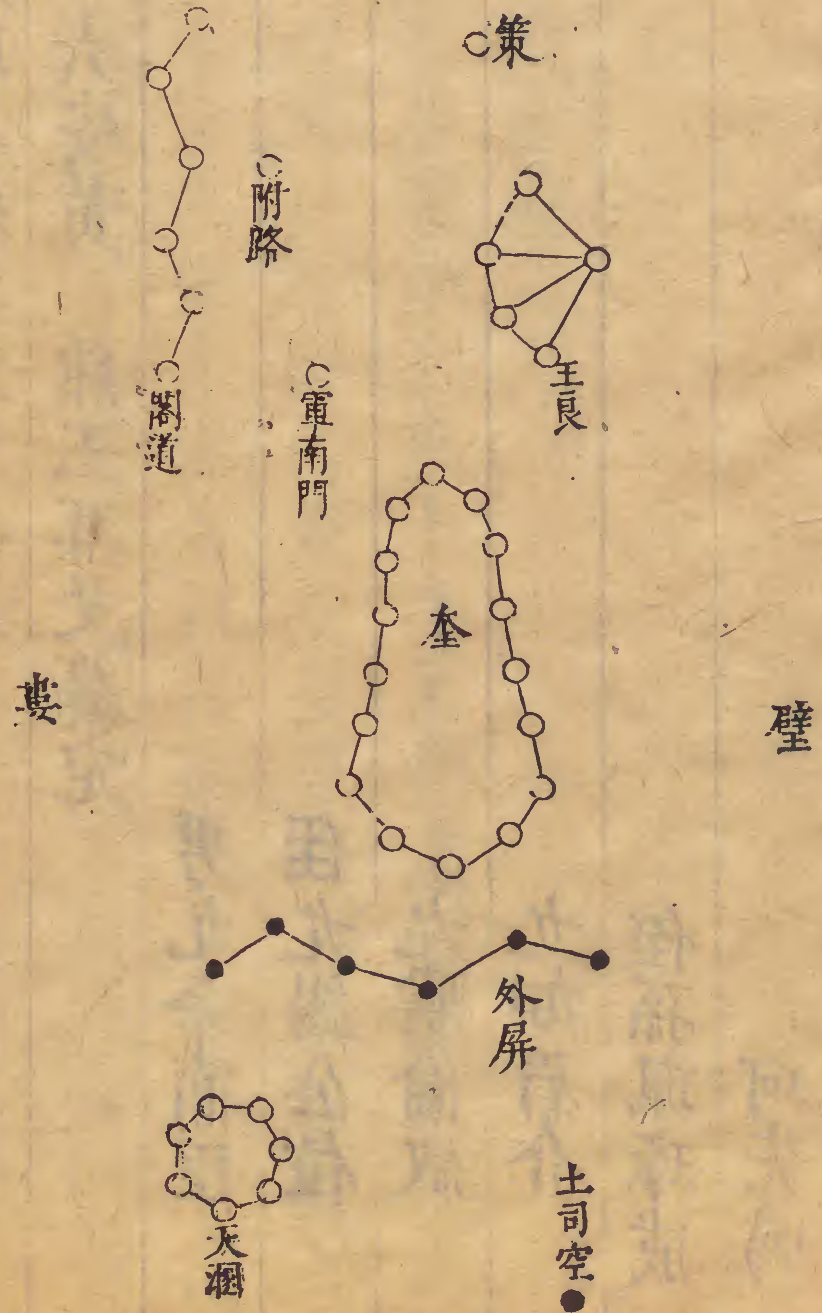 策
附路
王良
閣道
軍南門
奎
婁
壁
外屏
天溷
土司空